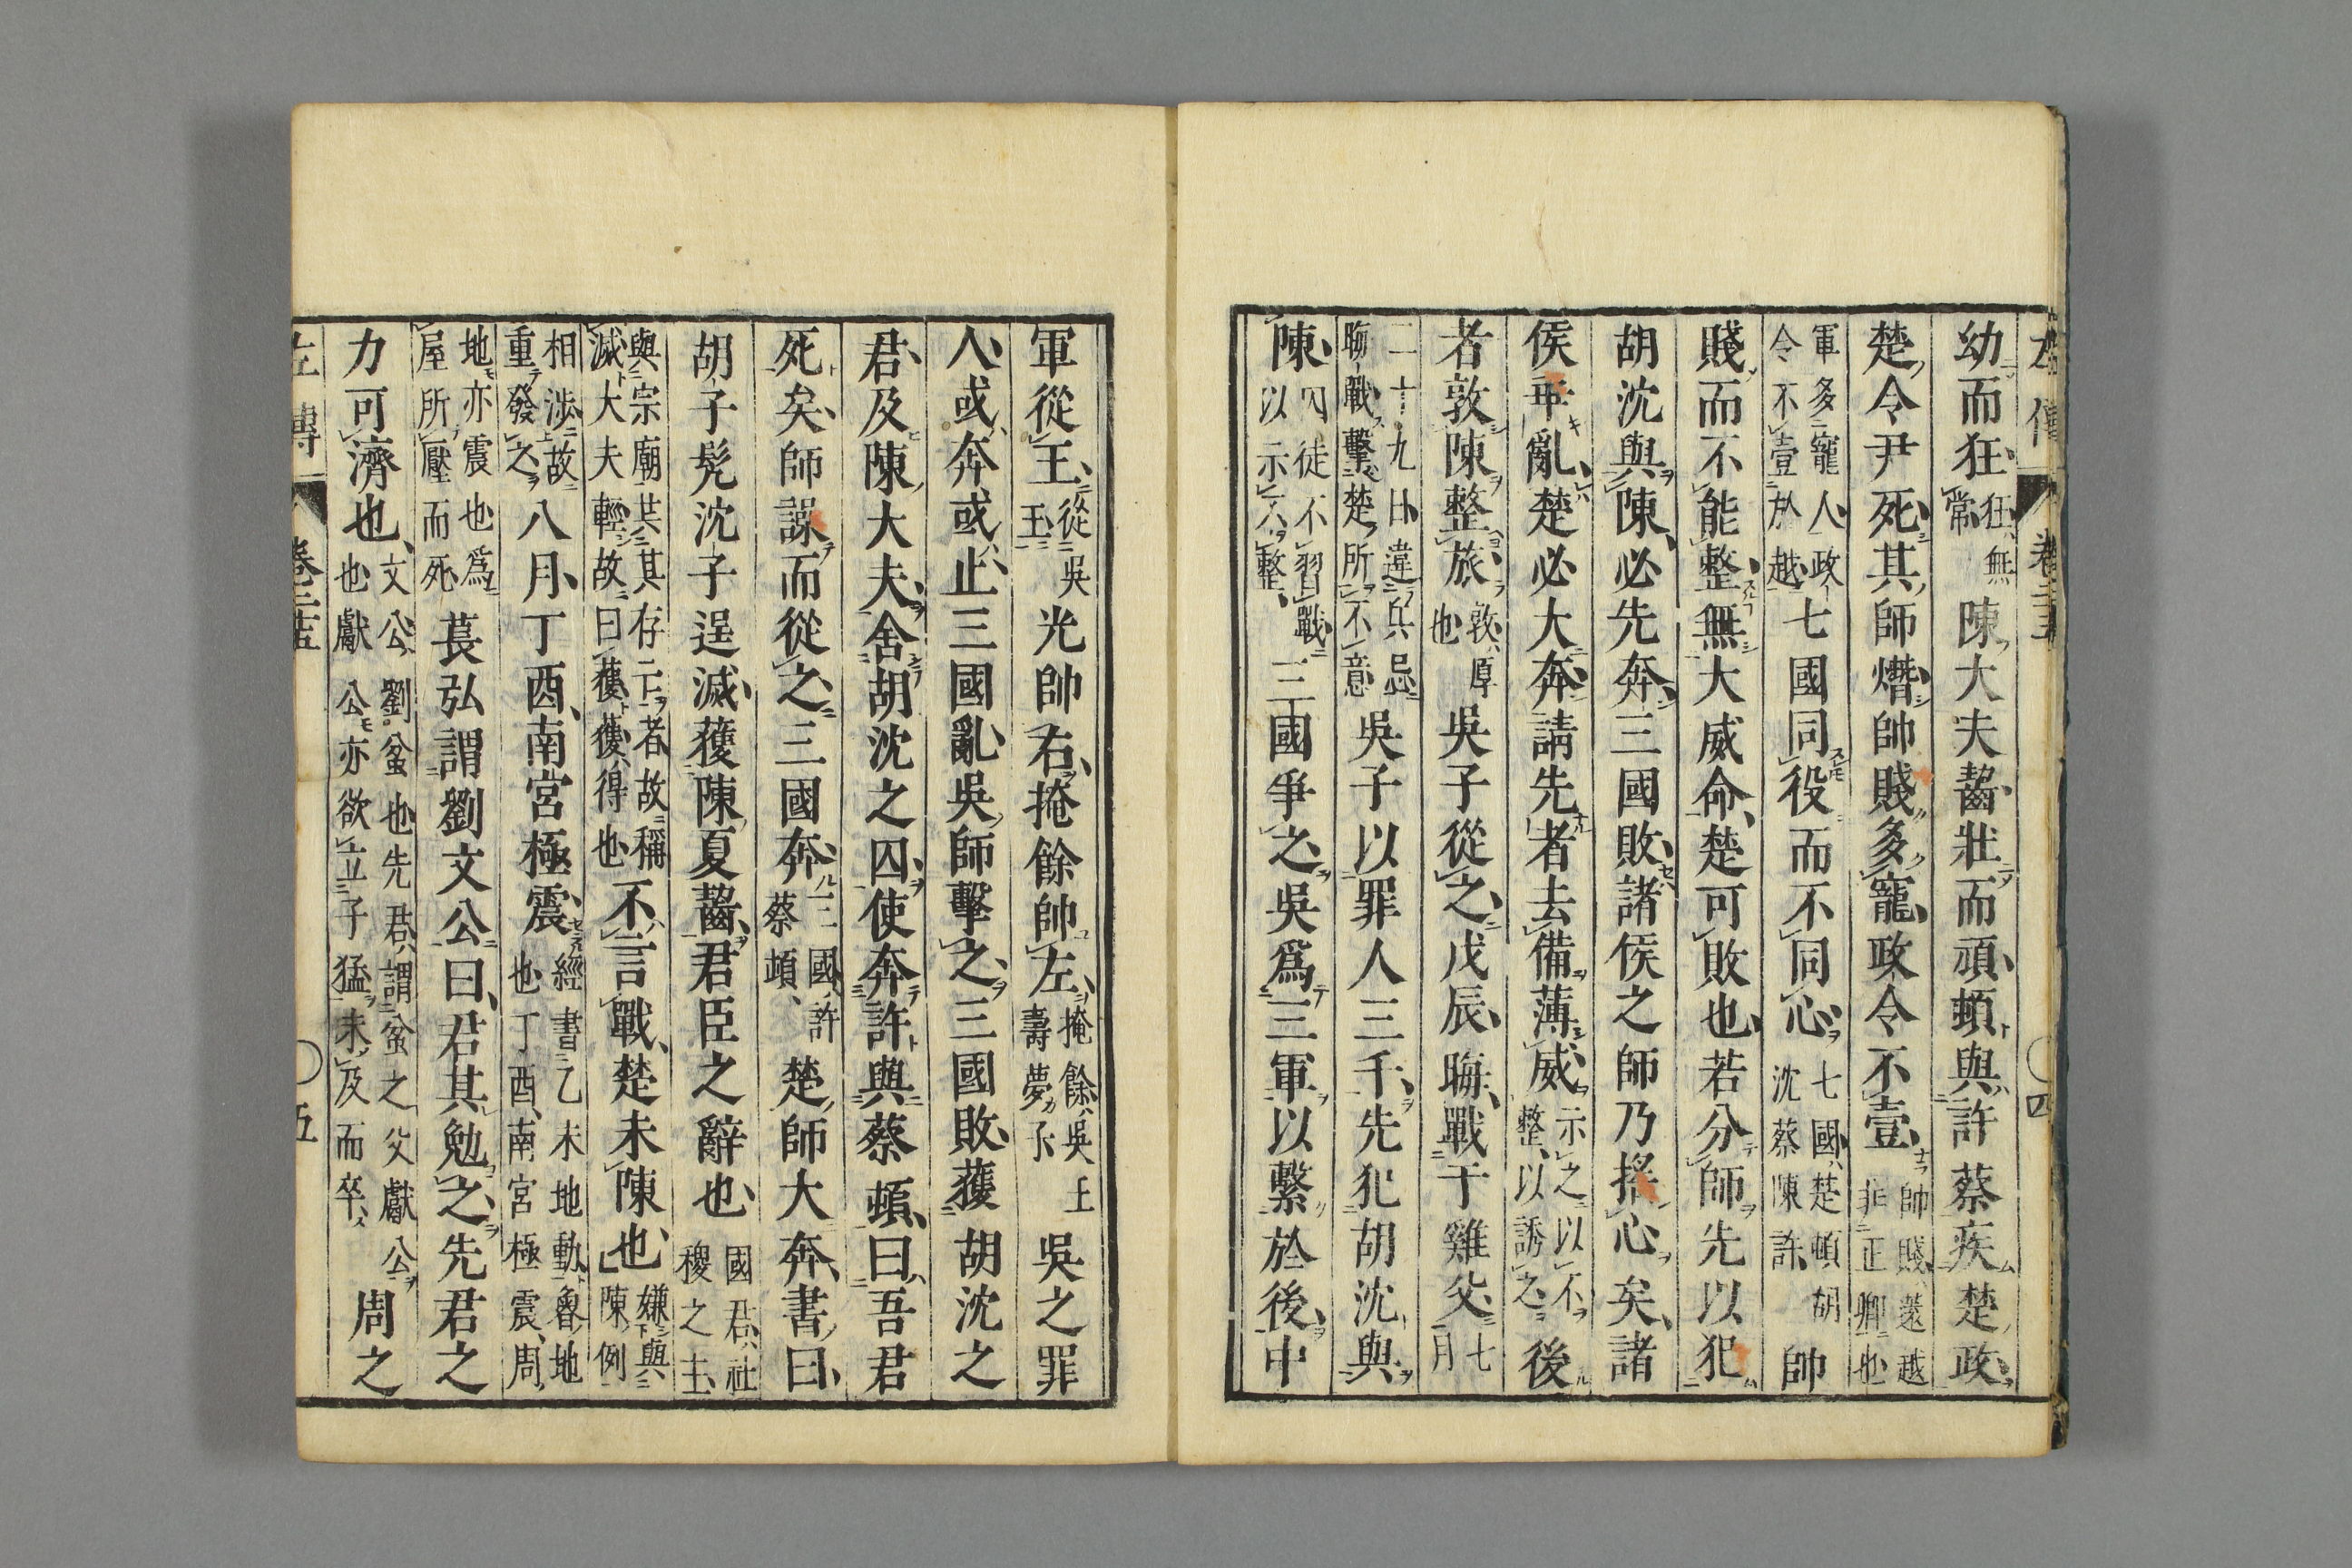 左傳 卷二十五 ○四
幼而狂狂無常陳大夫齧壯而頑頓與許蔡疾楚政
楚令尹死其師熸帥賤多寵政令不壹帥賤薳越非正卿也
軍多寵人政令不壹於越七國同役而不同心七國楚頓胡沈蔡陳許帥
賤而不能整無大威命楚可敗也若分師先以犯
胡沈與陳必先奔三國敗諸侯之師乃搖心矣諸
侯乖亂楚必大奔請先者去備薄威示之以不整以誘之後
者敦陳整旅敦厚也吳子從之戊辰晦戰于雞父七月
二十九日違兵忌晦戰擊楚所不意吳子以罪人三千先犯胡沈與
陳囚徒不習戰以示不整三國爭之吳爲三軍以繫於後中
軍從王從吳王光帥右掩餘帥左掩餘吳王壽夢子吳之罪
人或奔或止三國亂吳師擊之三國敗獲胡沈之
君及陳大夫舍胡沈之囚使奔許與蔡頓曰吾君
死矣師譟而從之三國奔三國許蔡頓楚師大奔書曰
胡子髡沈子逞滅獲陳夏齧君臣之辭也國君社稷之主
與宗廟共其存亡者故稱滅大夫輕故曰獲獲得也不言戰楚未陳也嫌與陳例
相涉故重發之八月丁酉南宮極震經書乙未地動魯地也丁酉南宮極震周
地亦震也爲屋所壓而死萇弘謂劉文公曰君其勉之先君之
力可濟也文公劉蚠也先君謂蚠之父獻公也獻公亦欲立子猛未及而卒周之
左傳 卷二十五 ○五